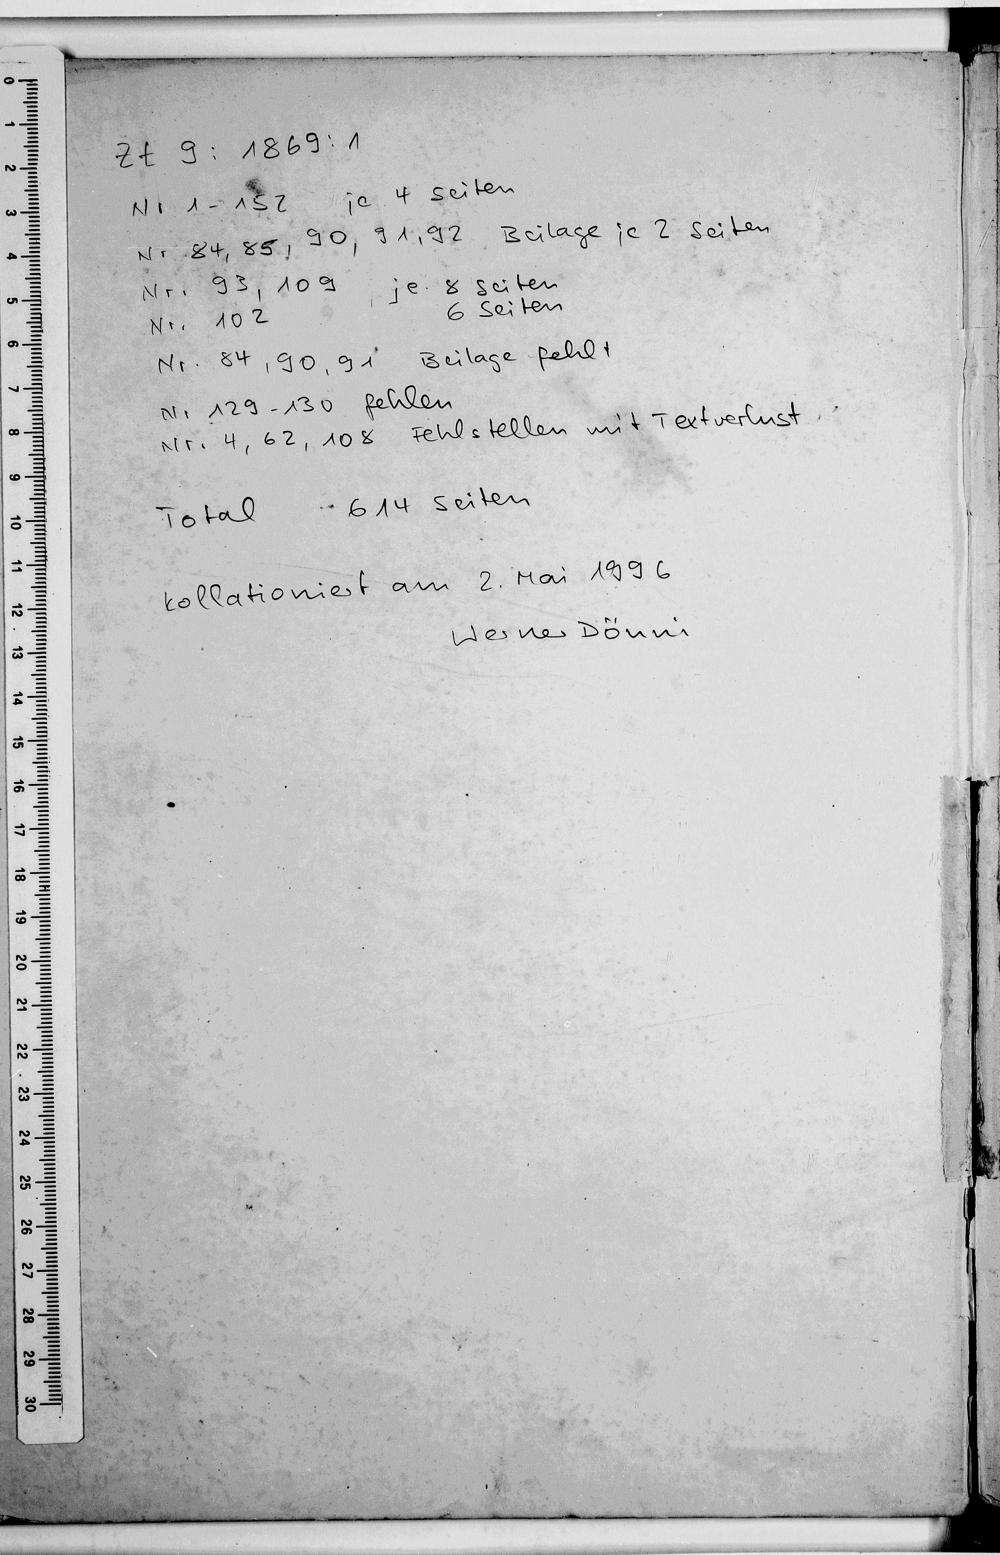 Zt 9: 1869:1
Nr 1-152 je 4 Seiten
Nr 84, 85, 90, 91, 92 Beilage je 2 Seiten
Nr. 93, 109 je 8 Seiten
Nr. 102 6 Seiten
Nr. 84, 90, 91 Beilage fehlt
Nr 129-130 fehlen
Nr. 4, 62, 108 Fehlstellen mit Textverlust
Total 614 Seiten
Kollationiert am 2. Mai 1996
Werner Dönni
0
1
2
3
4
5
6
7
8
9
10
11
12
13
14
15
16
17
18
19
20
21
22
23
24
25
26
27
28
29
30